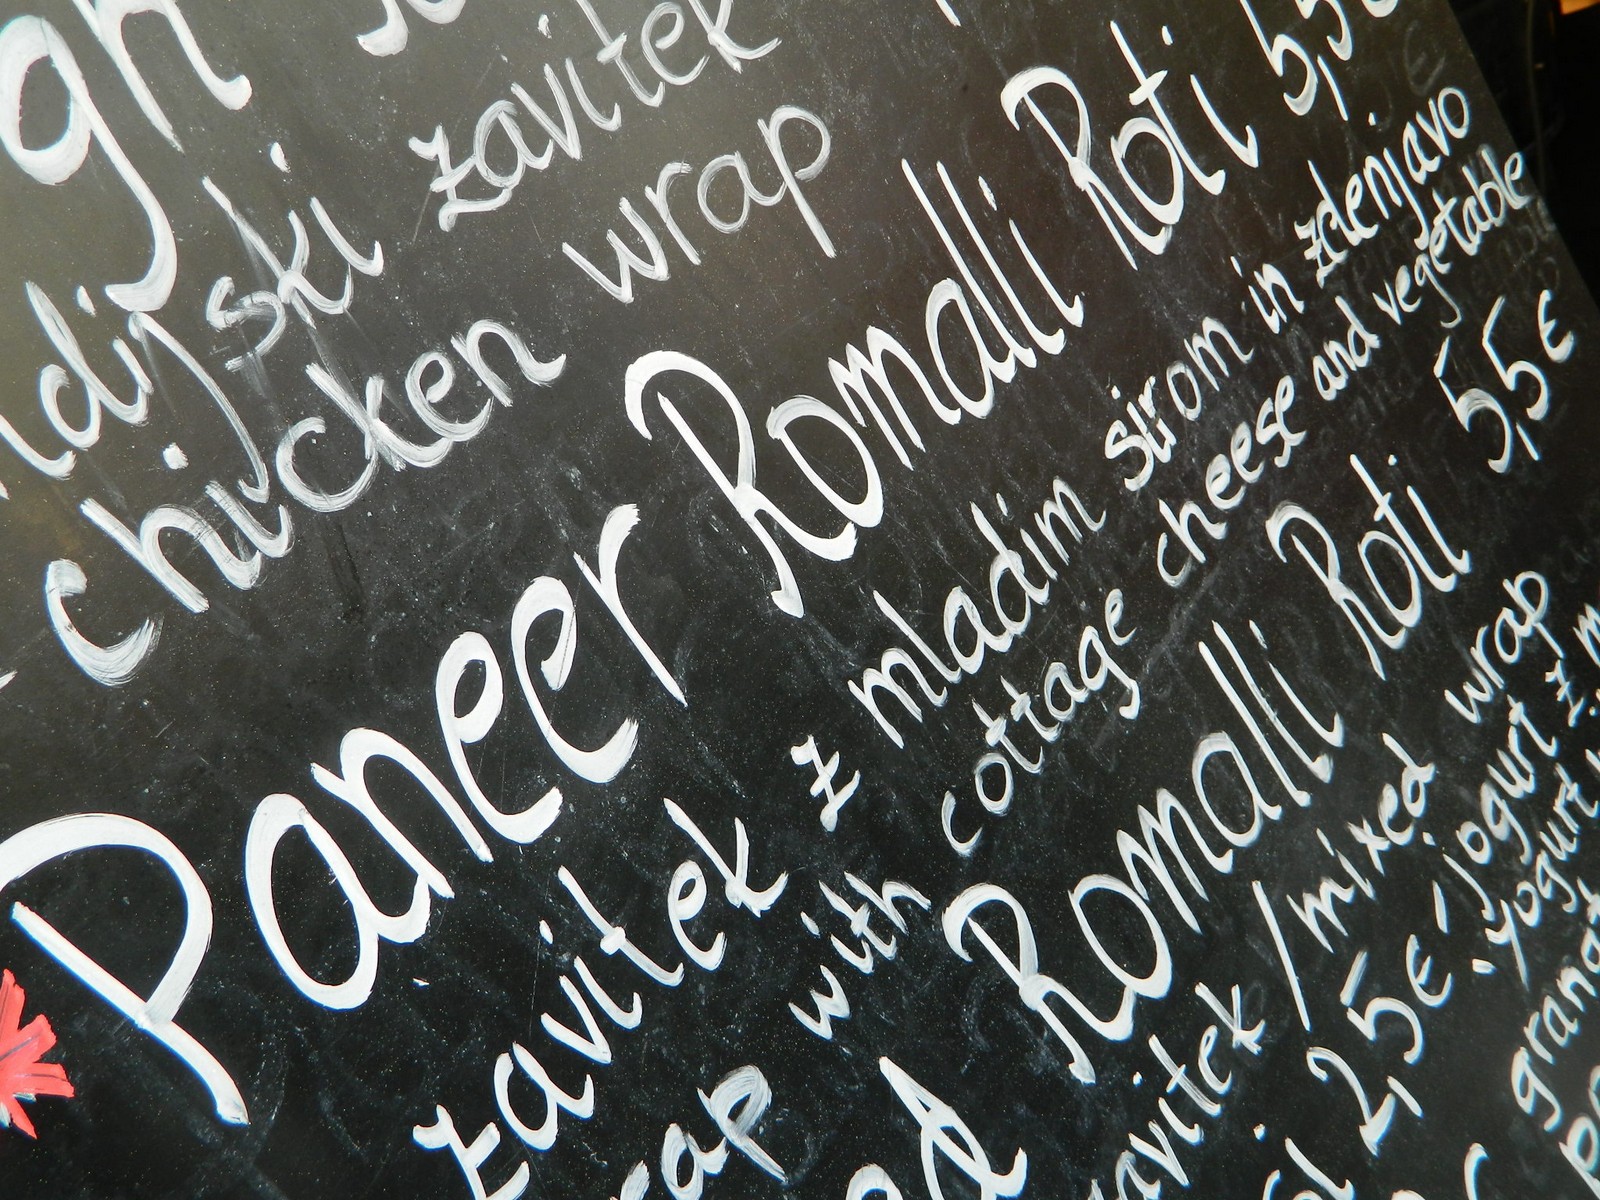 gh 5,5€
ndijski zavitek
chicken wrap
Paneer Romalli Roti
zavitek z mladim sirom in zelenjavo
wrap with cottage cheese and vegetable
Romalli Roti 5,5€
zavitek / mixed wrap
2,5€ - jogurt z
yogurt